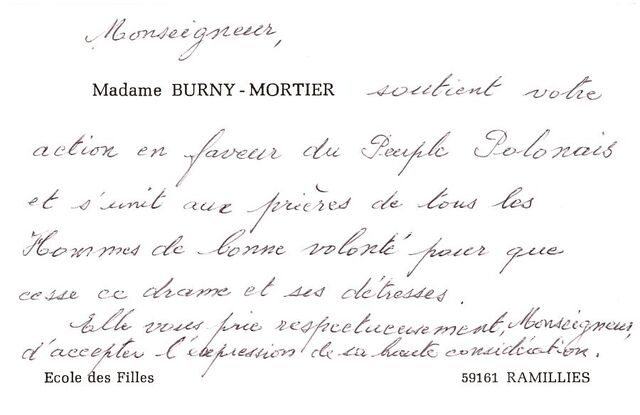 Monseigneur,
Madame BURNY - MORTIER soutient votre
action en faveur du Peuple Polonais
et s'unit aux prières de tous les
Hommes de bonne volonté pour que
cesse ce drame et ses détresses.
Elle vous prie respectueusement, Monseigneur,
d'accepter l'expression de sa haute considération.
Ecole des Filles 59161 RAMILLIES